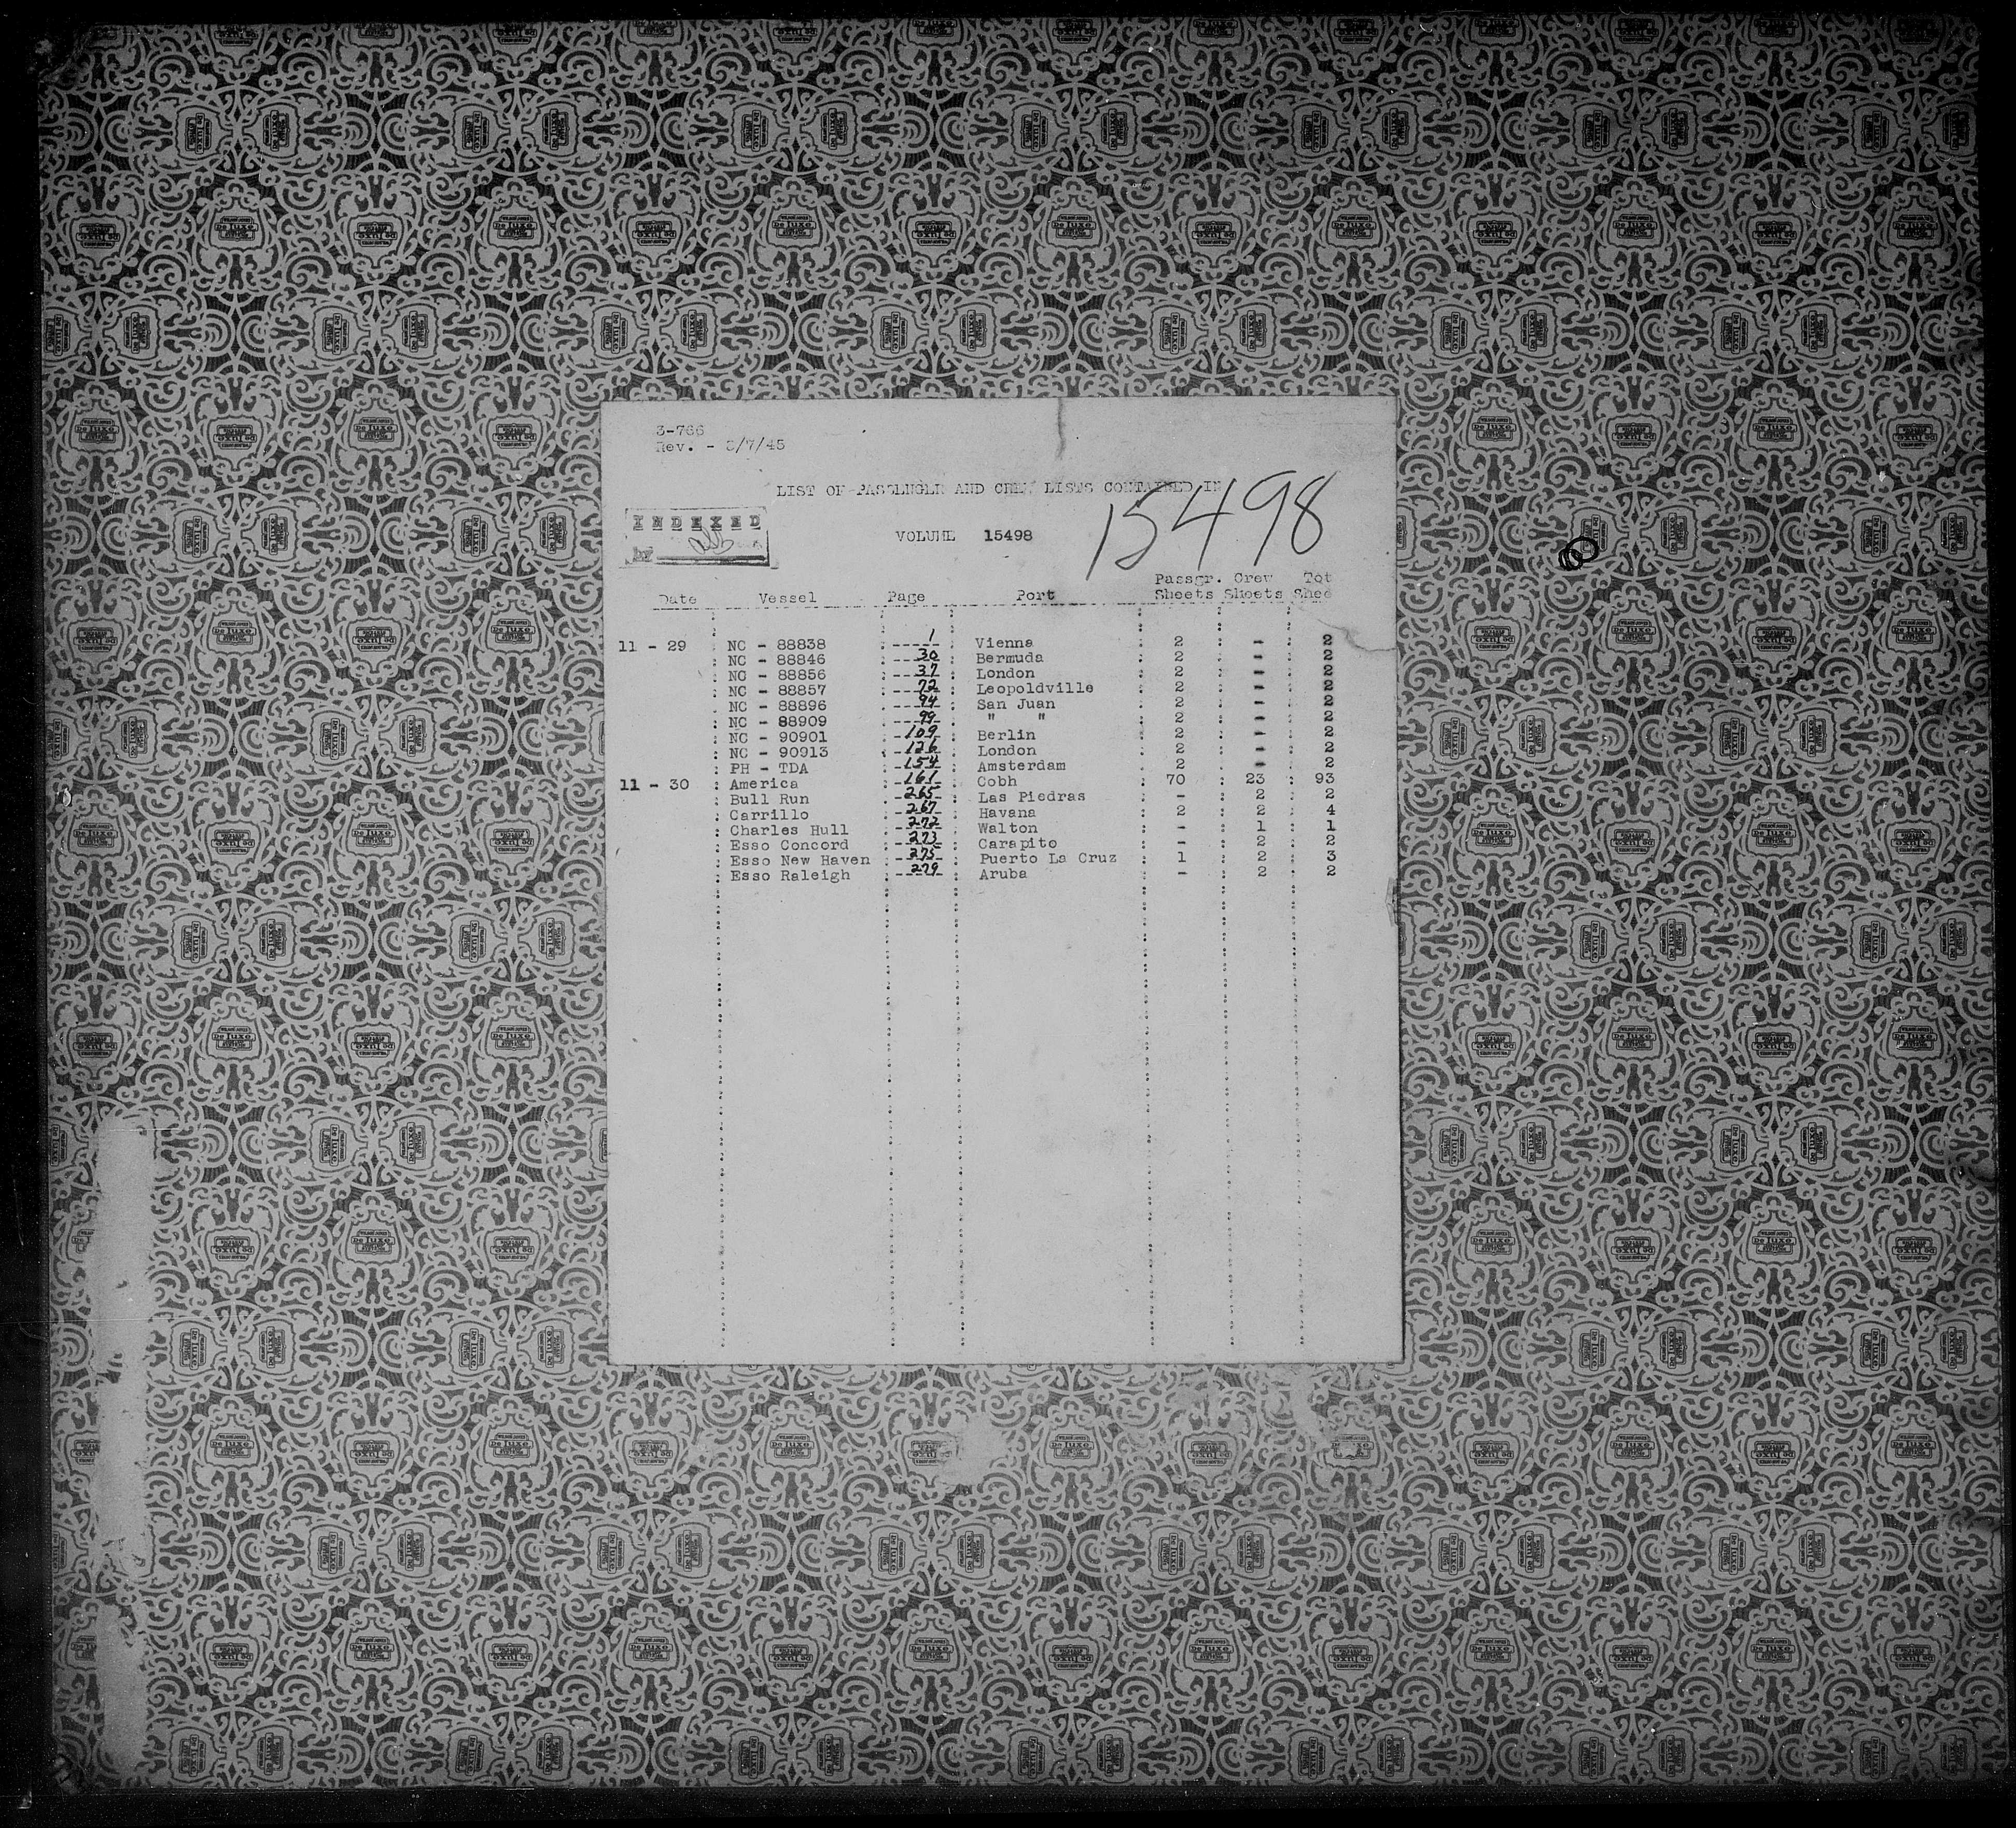 3-766
Rev. - 8/7/45
LIST OF PASSENGER AND CREW LISTS CONTAINED IN
15498
INDEXED
by
VOLUME 15498
Passgr. Crew Tot
Date Vessel Page Port Sheets Sheets Shee
11 - 29 : NC - 88838 : 1 : Vienna : 2 : - : 2
: NC - 88846 : 30 : Bermuda : 2 : - : 2
: NC - 88856 : 37 : London : 2 : - : 2
: NC - 88857 : 72 : Leopoldville : 2 : - : 2
: NC - 88896 : 94 : San Juan : 2 : - : 2
: NC - 88909 : 99 : " " : 2 : - : 2
: NC - 90901 : 109 : Berlin : 2 : - : 2
: NC - 90913 : 126 : London : 2 : - : 2
: PH - TDA : 154 : Amsterdam : 2 : - : 2
11 - 30 : America : 161 : Cobh : 70 : 23 : 93
: Bull Run : 265 : Las Piedras : - : 2 : 2
: Carrillo : 267 : Havana : 2 : 2 : 4
: Charles Hull : 272 : Walton : - : 1 : 1
: Esso Concord : 273 : Carapito : - : 2 : 2
: Esso New Haven : 275 : Puerto La Cruz : 1 : 2 : 3
: Esso Raleigh : 279 : Aruba : - : 2 : 2
De Luxe